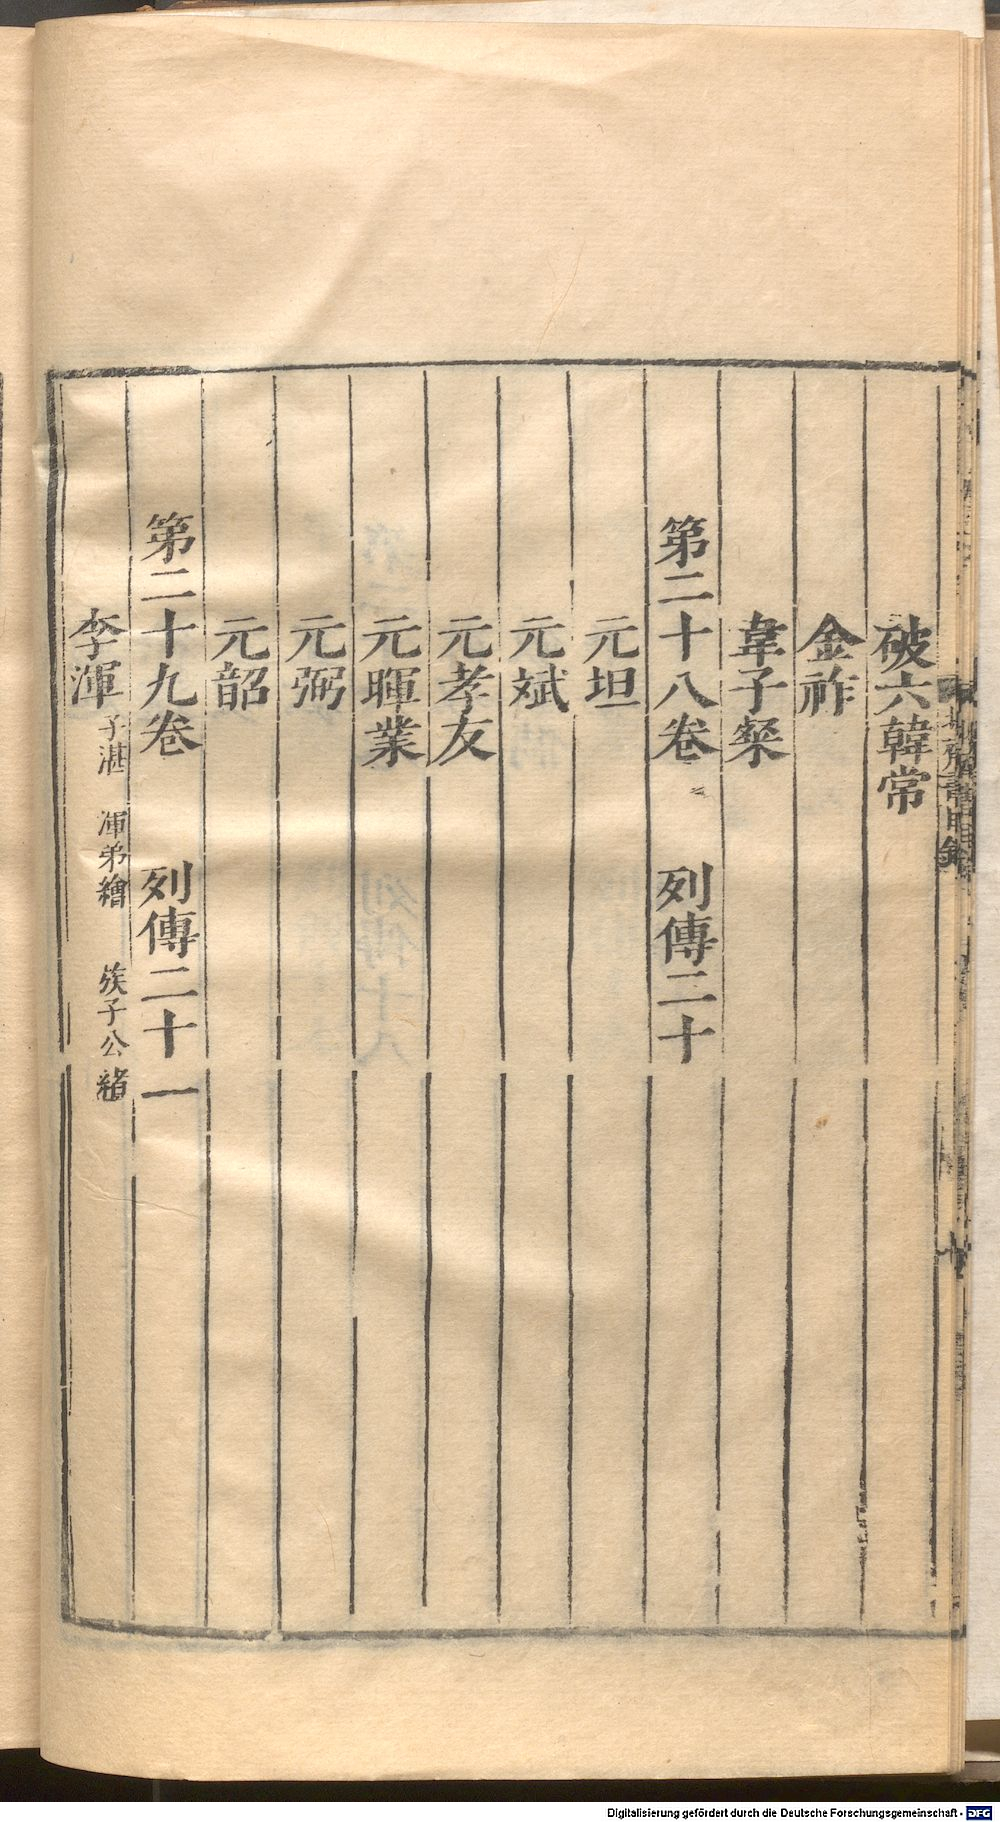 破六韓常
金祚
韋子粲
第二十八卷 列傳二十
元坦
元斌
元孝友
元暉業
元弼
元韶
第二十九卷 列傳二十一
李渾 子湛 渾弟繪 族子公緒
Digitalisierung gefördert durch die Deutsche Forschungsgemeinschaft - DFG